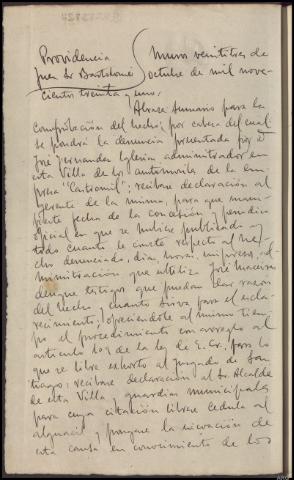 Providencia
Juez Sr Bartolomé
Muros veintitres de
octubre de mil nove-
cientos treinta y uno.
Abrase sumario para la
comprobación del hecho; por cabeza del cual
se pondrá la denuncia presentada por D
José Fernandez Iglesias administrador en
esta Villa de los automóviles de la em
presa "Castromil"; recibase declaración al
gerente de la misma, para que mani-
fieste fecha de la concesión y periodico
oficial en que se hubiese publicado y
todo cuanto le conste respecto al he-
cho denunciado, dia, hora, empresa, ad-
ministración que utiliza José Maceiras
denque testigos que puedan dar razón
del hecho y cuanto sirva para el escla-
recimiento; ofreciendole al mismo tiem-
po el procedimiento con arreglo al
articulo 109 de la ley de E. Cr. para lo
que se libre exhorto al juzgado de San
tiago; recibase declaración al Sr Alcalde
de esta Villa y guardias municipales
para cuya citación librese cedula al
alguacil; pongase la incoación de
esta causa en conocimiento de los